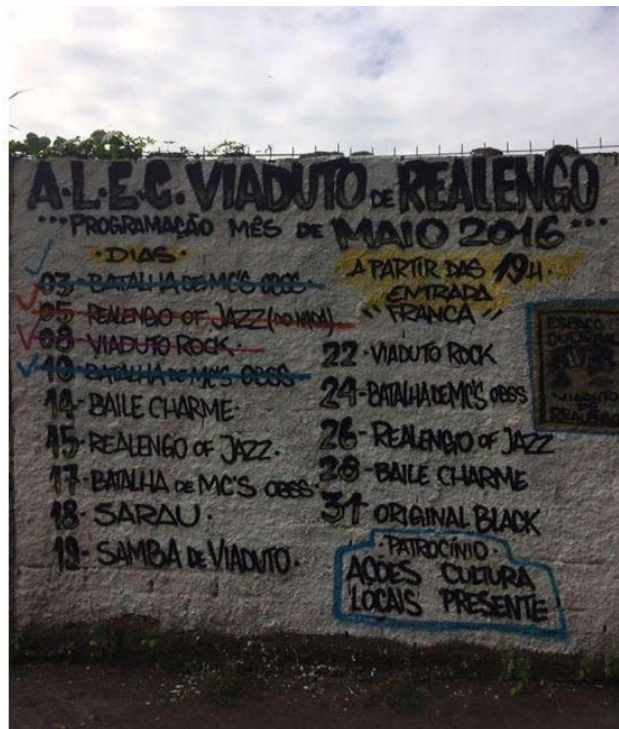 A.L.E.C. VIADUTO DE REALENGO
PROGRAMAÇÃO MÊS DE MAIO 2016
DIAS
03-BATALHA DE MC'S OBSS
05-REALENGO OF JAZZ (DO NADA)
08-VIADUTO ROCK
10-BATALHA DE MC'S OBSS
14-BAILE CHARME
15-REALENGO OF JAZZ
17-BATALHA DE MC'S OBSS
18-SARAU
19-SAMBA DE VIADUTO
A PARTIR DAS 19H
ENTRADA
"FRANCA"
22-VIADUTO ROCK
24-BATALHA DE MC'S OBSS
26-REALENGO OF JAZZ
28-BAILE CHARME
31 ORIGINAL BLACK
PATROCÍNIO
AÇÕES CULTURA
LOCAIS PRESENTE
ESPAÇO
CULTURAL
VIADUTO
DE
REALENGO